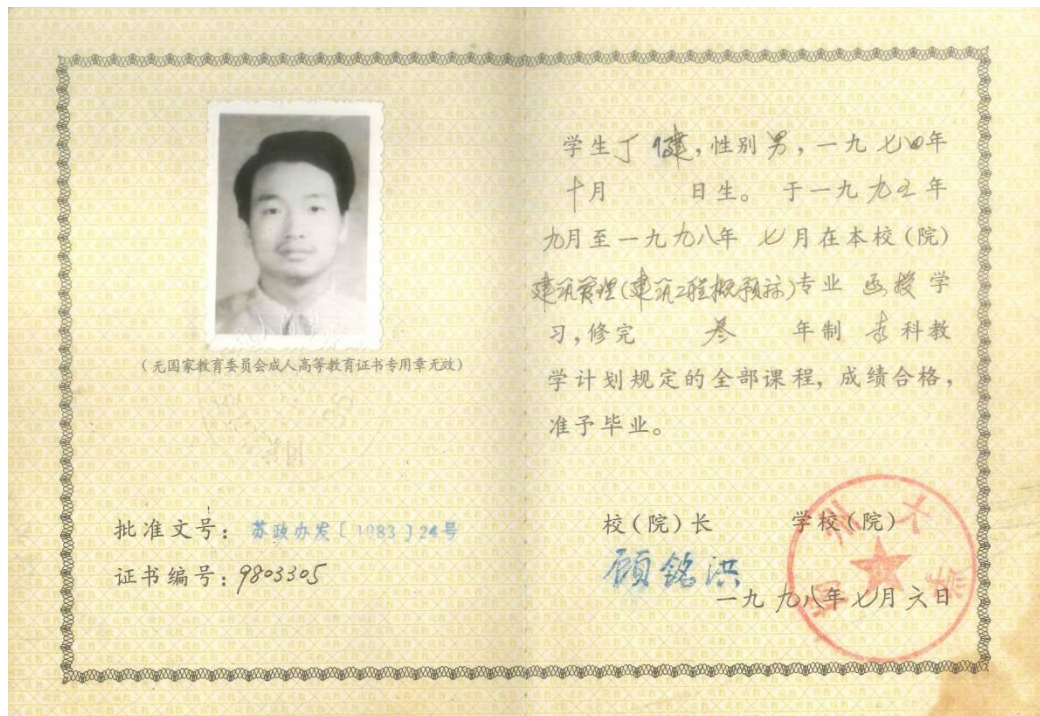 (无国家教育委员会成人高等教育证书专用章无效)
批准文号：苏政办发〔1983〕24号
证书编号：9803305
学生丁健，性别男，一九七四年
十月 日生。于一九九五年
九月至一九九八年 七月在本校(院)
建筑管理(建筑工程概预算)专业 函授学
习，修完 叁 年制 专科教
学计划规定的全部课程，成绩合格，
准予毕业。
校(院)长 学校(院)
顾铭洪
一九九八年七月六日
扬州大学